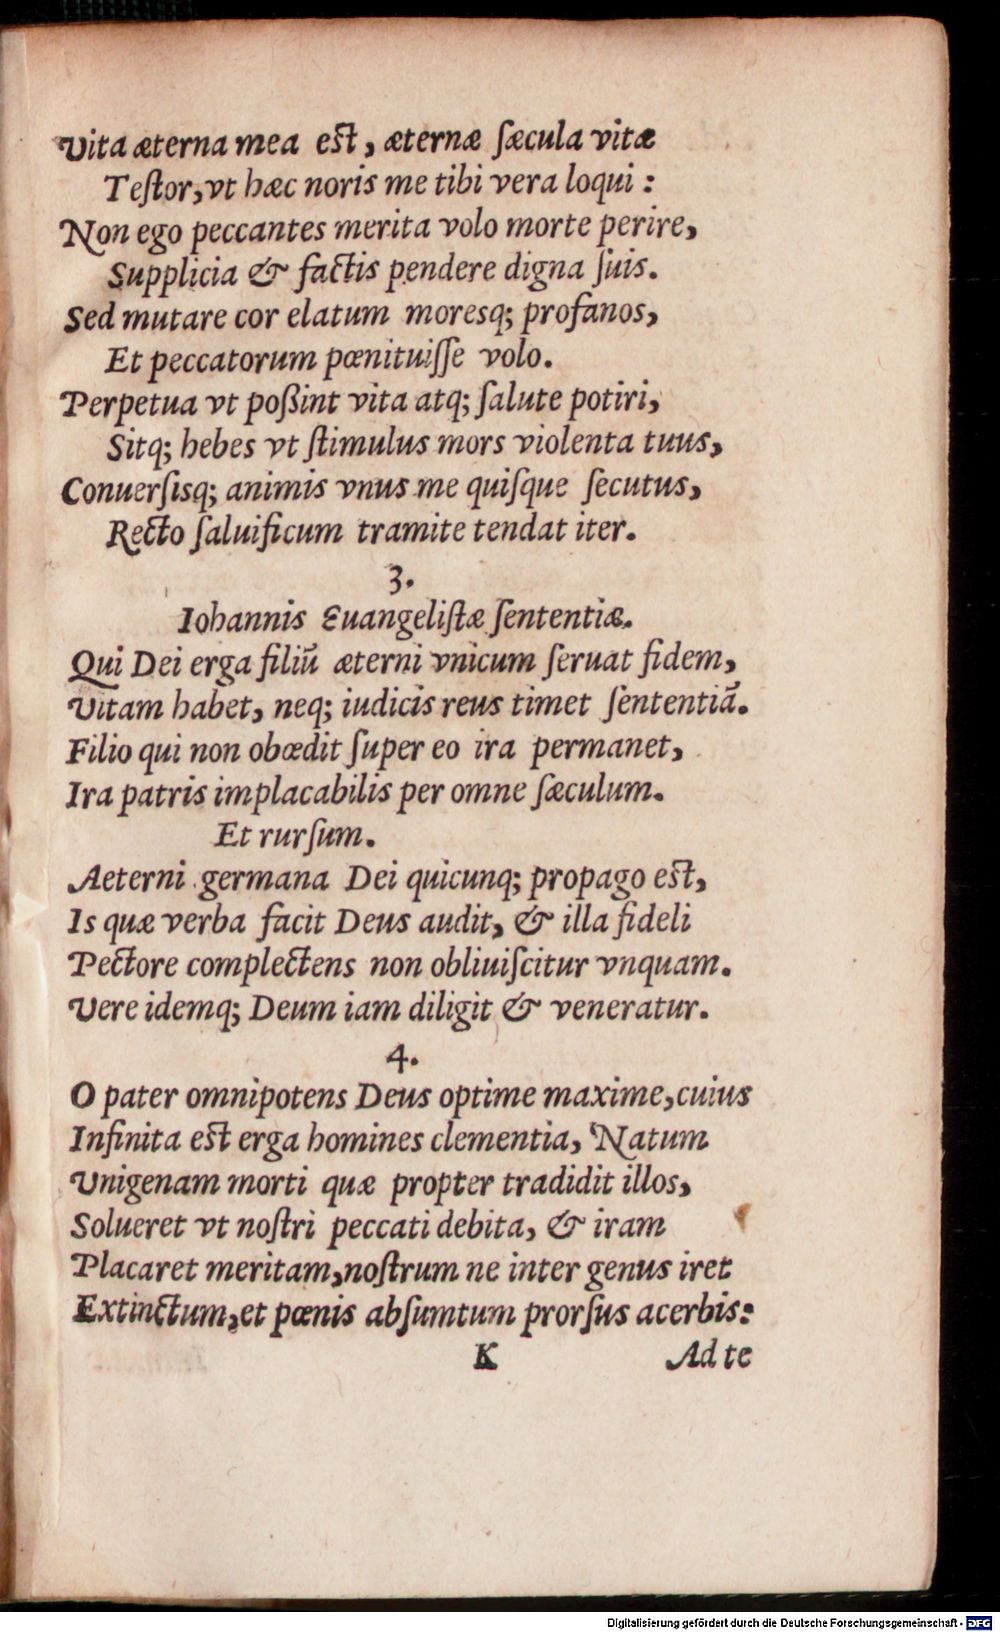 Vita æterna mea est, æternæ ſæcula vitæ
Teſtor, vt hæc noris me tibi vera loqui:
Non ego peccantes merita volo morte perire,
Supplicia & factis pendere digna ſuis.
Sed mutare cor elatum moresq; profanos,
Et peccatorum pœnituiſſe volo.
Perpetua vt poßint vita atq; ſalute potiri,
Sitq; hebes vt ſtimulus mors violenta tuus,
Conuerſisq; animis vnus me quiſque ſecutus,
Recto ſaluificum tramite tendat iter.
3.
Iohannis Euangeliſtæ ſententiæ.
Qui Dei erga filiū æterni vnicum ſeruat fidem,
Vitam habet, neq; iudicis reus timet ſententiā.
Filio qui non obœdit ſuper eo ira permanet,
Ira patris implacabilis per omne ſæculum.
Et rurſum.
Aeterni germana Dei quicunq; propago est,
Is quæ verba facit Deus audit, & illa fideli
Pectore complectens non obliuiſcitur vnquam.
Vere idemq; Deum iam diligit & veneratur.
4.
O pater omnipotens Deus optime maxime, cuius
Infinita est erga homines clementia, Natum
Vnigenam morti quæ propter tradidit illos,
Solueret vt noſtri peccati debita, & iram
Placaret meritam, noſtrum ne inter genus iret
Extinctum, et pœnis abſumtum prorſus acerbis:
K Ad te
Digitalisierung gefördert durch die Deutsche Forschungsgemeinschaft - DFG